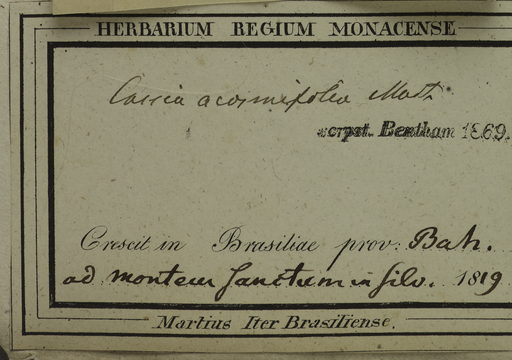 HERBARIUM REGIUM MONACENSE
Cassia acosmifolia Mart.
scrpst. Bentham 1869.
Crescit in Brasiliae prov: Bah.
ad montem Sanctum in silv. 1819
Martius Iter Brasiliense.